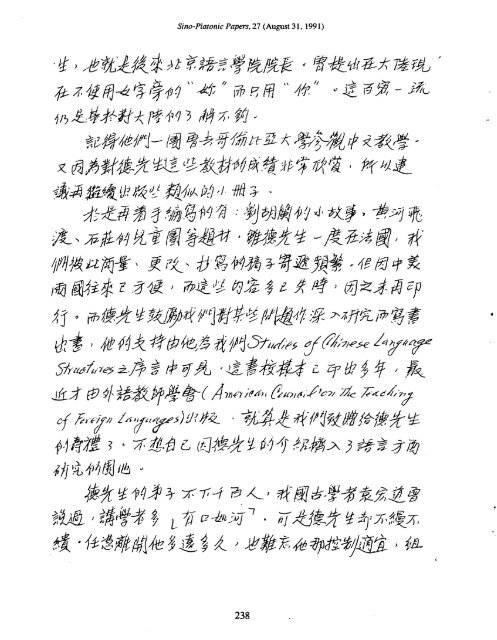 Sino-Platonic Papers, 27 (August 31, 1991)
生，也就是後來北京語言學院院長，曾提出在大陸現
在不使用女字旁的"妳"而只用"你"。這百密一疏
仍是基於對大陸的了解不夠。
記得他們一團曾去哥倫比亞大學參觀中文教學。
又因為對德先生這些教材的成績非常欣賞，所以建
議再繼續出版些類似的小冊子。
於是再著手編寫的有：劉胡蘭的小故事，黃河飛
渡、石莊的兒童團等題材。雖德先生一度在法國，我
們彼此商量、更改、抄寫的稿子寄遞頻繁。但因中美
兩國往來已方便，而這些內容多已失時，因之未再印
行。而德先生鼓勵我們對某些問題作深入研究而寫書
出書，他的支持由他為我們Studies of Chinese Language
Structures之序言中可見。這書校樣本已印出多年，最
近才由外語教師學會(American Council on The Teaching
of Foreign Languages)出版，就算是我們致贈給德先生
的壽禮了。不想自己因德先生的介紹稱入了語言方面
研究的園地。
德先生的弟子不下千百人，我國古學者袁宏道曾
說過，講學者多「有口如河」，可是德先生卻不緩不
，任憑離開他多遠多久，也難忘他那控制適宜，組
238